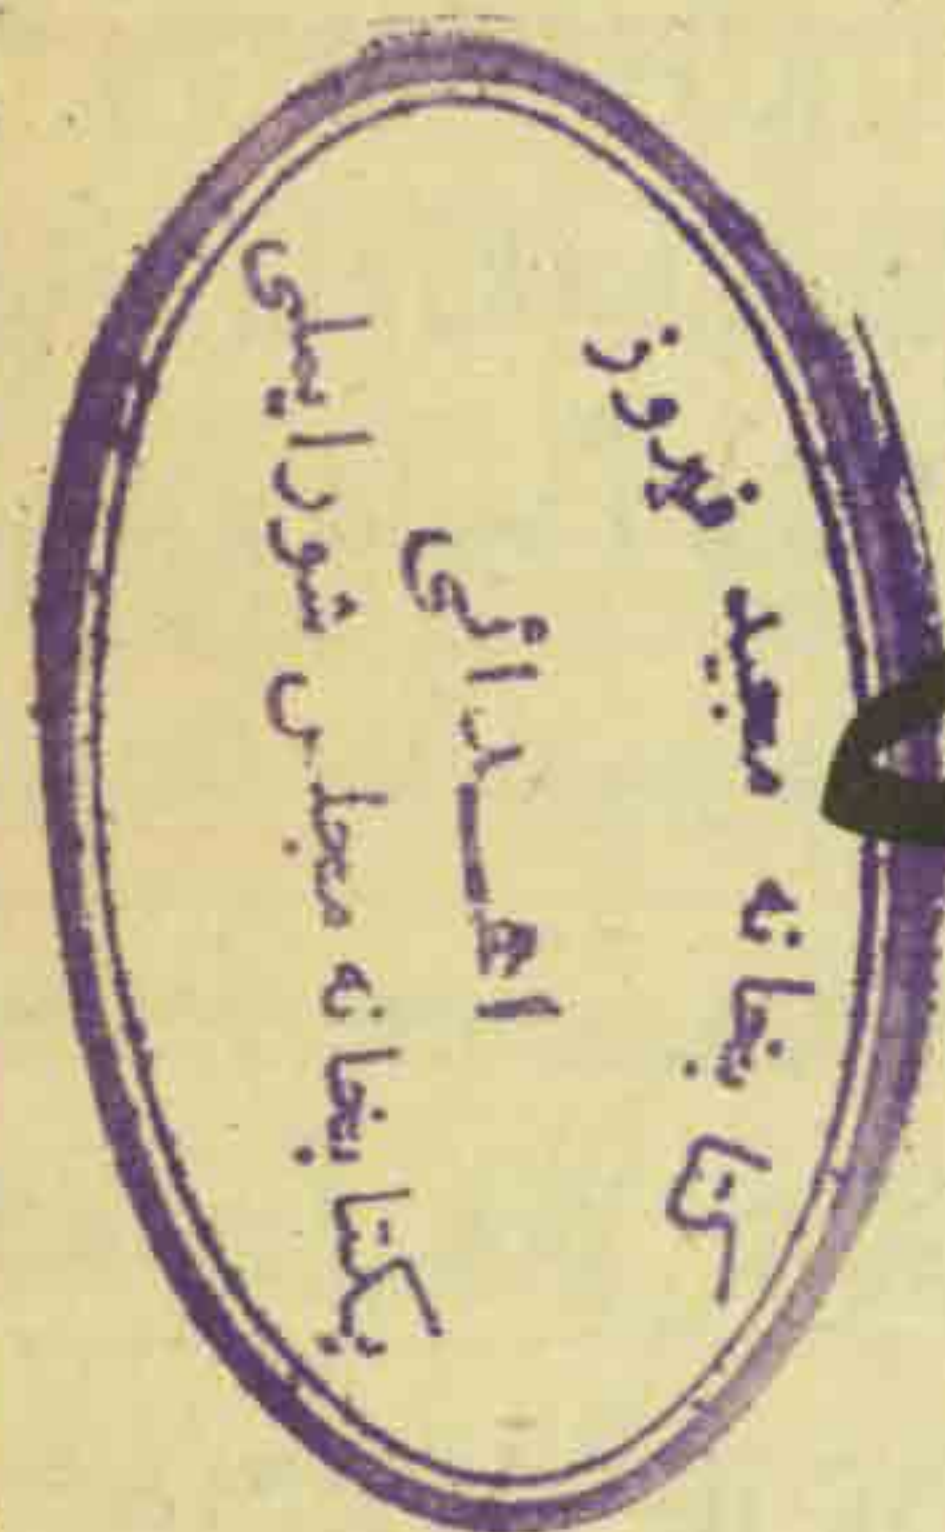 کتابخانه مجید فیروز
اهـدائی
بکتابخانه مجلس شورایملی